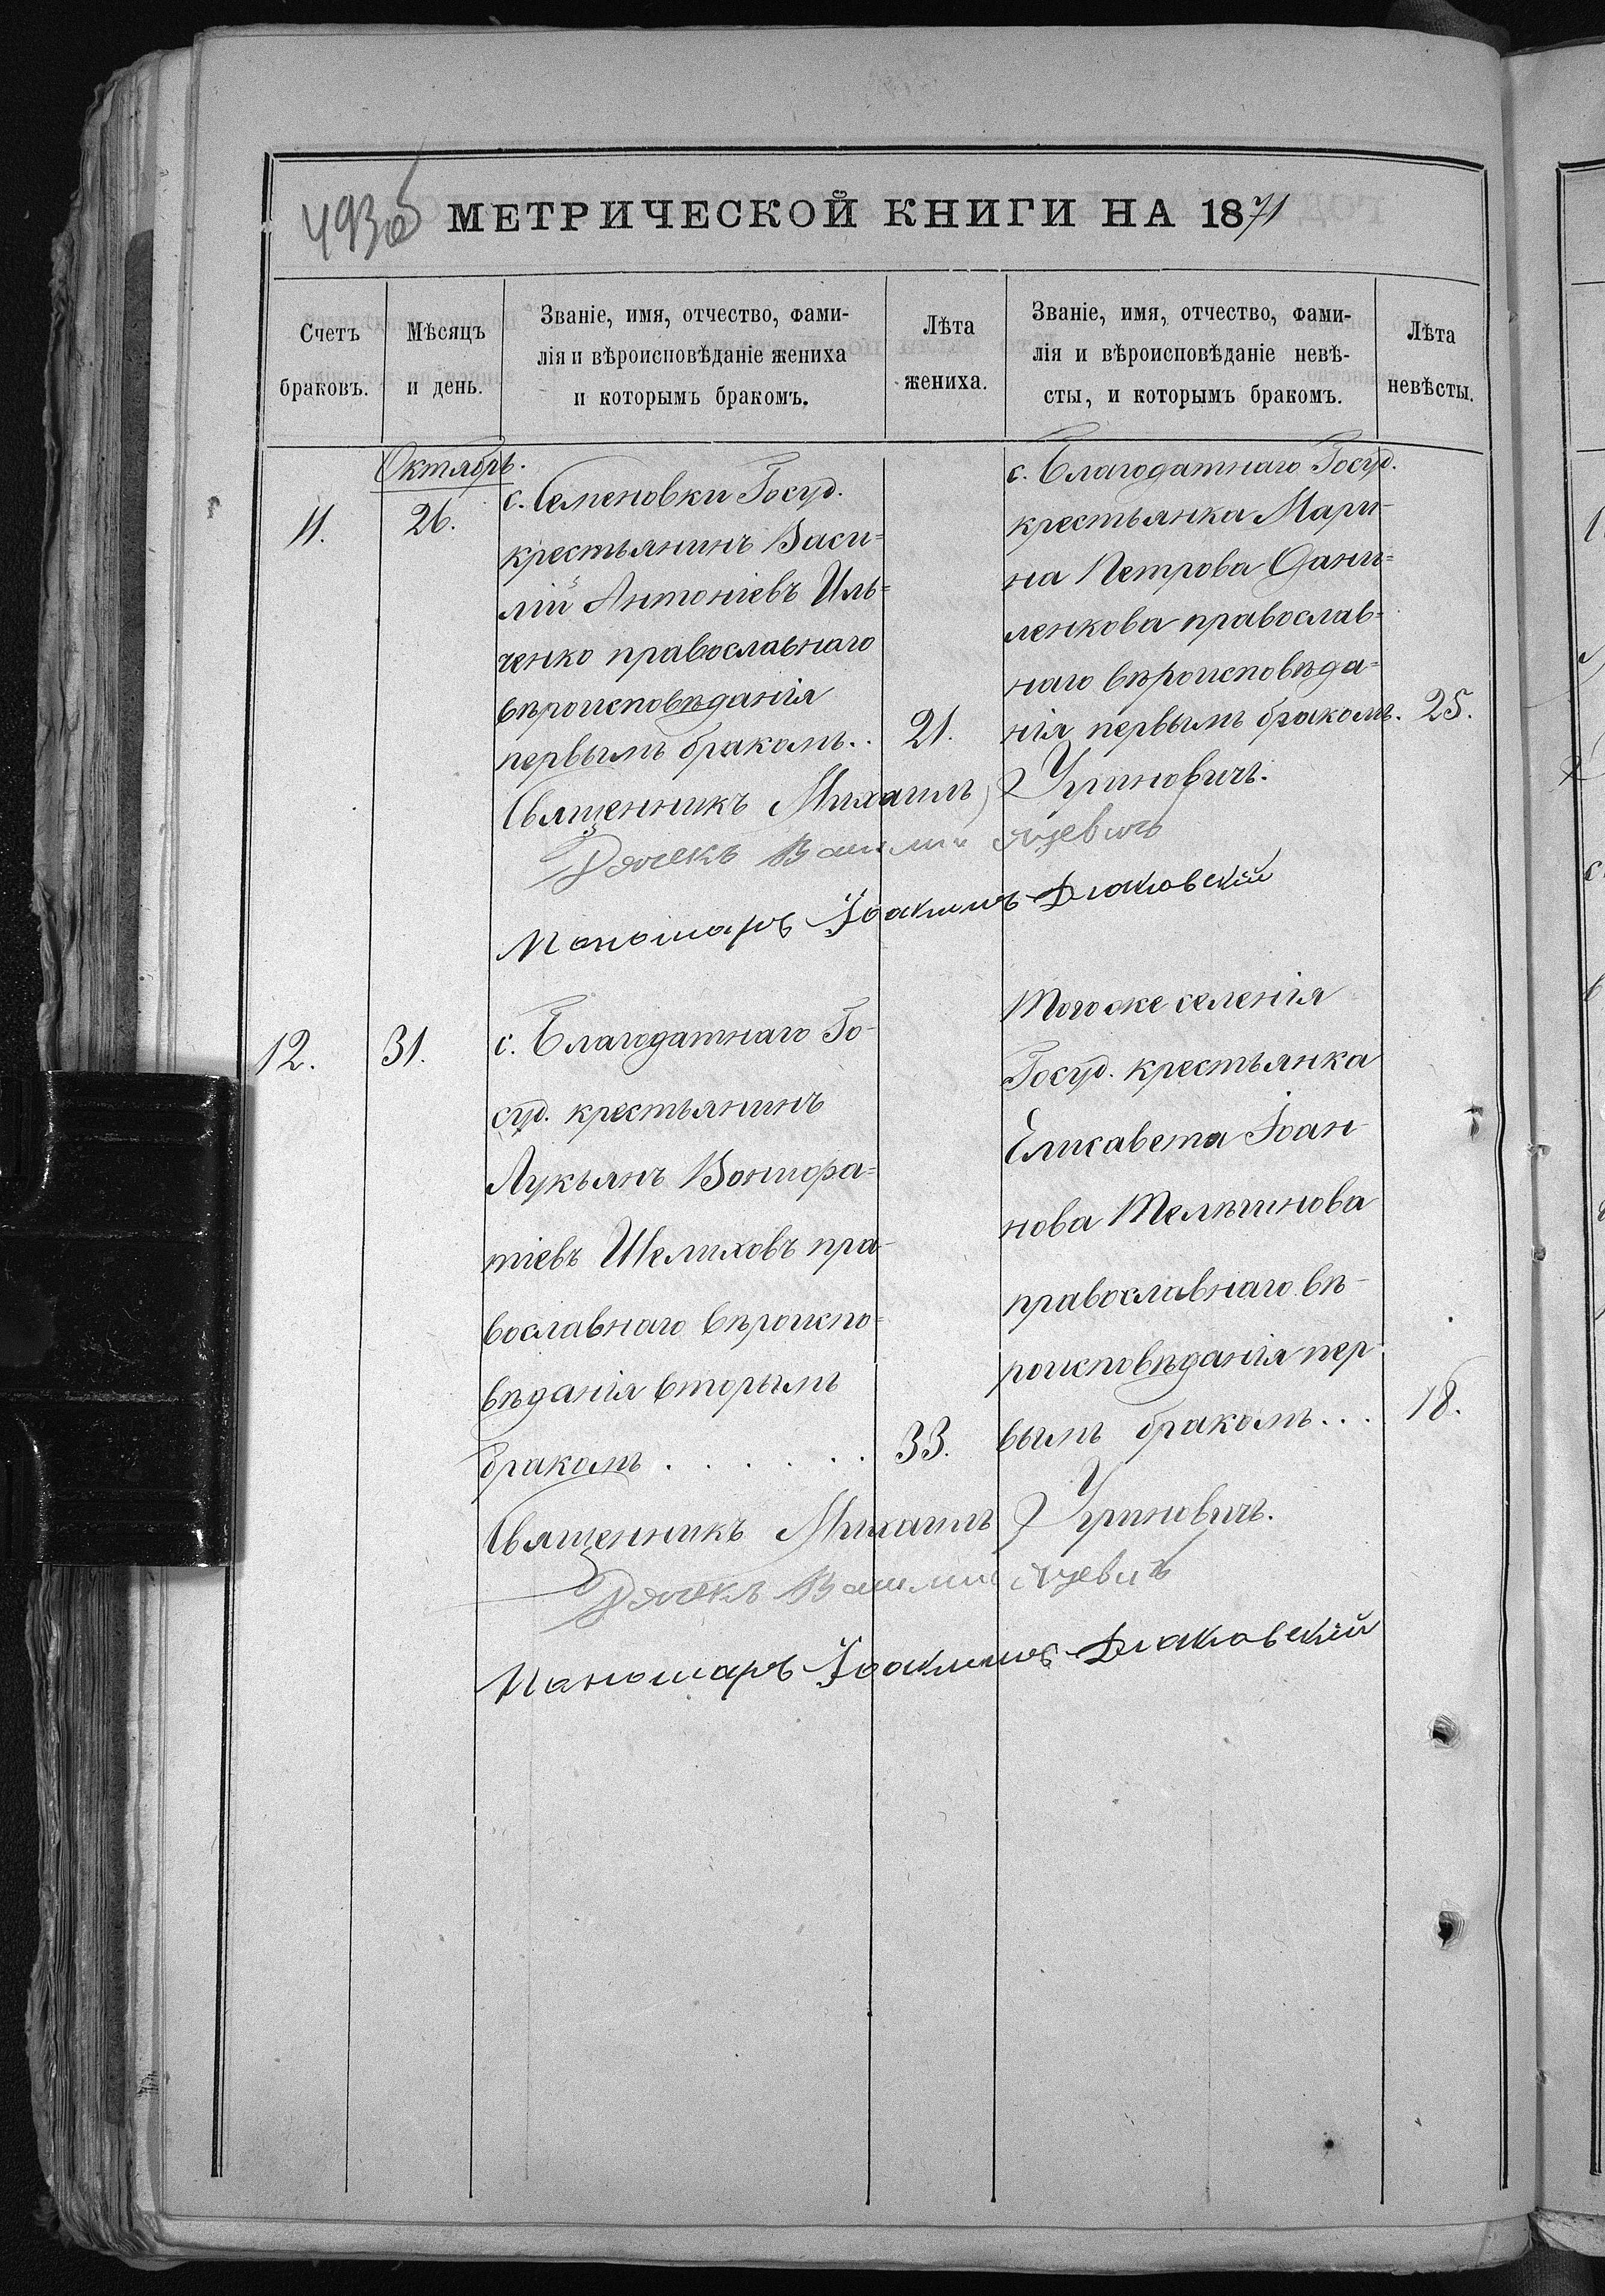 493об
МЕТРИЧЕСКОЙ КНИГИ НА 1871
Счетъ браковъ.
Мѣсяцъ и день.
Званіе, имя, отчество, фами-
лія и вѣроисповѣданіе жениха
и которымъ бракомъ.
Лѣта
жениха.
Званіе, имя, отчество, фами-
лія и вѣроисповѣданіе невѣ-
сты, и которымъ бракомъ.
Лѣта
невѣсты.
Октябрь.
11.
26.
с. Семеновки Госуд.
крестьянинъ Васи=
лій Антоніевъ Иль=
ченко православнаго
вѣроисповѣданія
первымъ бракомъ..
21.
с. Благодатнаго Госуд.
крестьянка Мари-
на Петрова Дани=
ленкова православ=
наго вѣроисповѣда=
нія первымъ бракомъ.
25.
Священникъ Михаилъ Угриновичъ.
Дячекъ Василий
Пономарь Іоакимъ Діаковскій
12.
31.
с. Благодатнаго Го-
суд. крестьянинъ
Лукьянъ
тіевъ Шелиховъ пра-
вославнаго вѣроиспо=
вѣданія вторымъ
бракомъ . . . . . .
33.
Того же селенія
Госуд. крестьянка
Елисавета Іоан-
нова
православнаго вѣ-
роисповѣданія пер-
вымъ бракомъ...
18.
Священникъ Михаилъ Угриновичъ.
Дячекъ Василий
Пономарь Іоакимъ Діаковскій